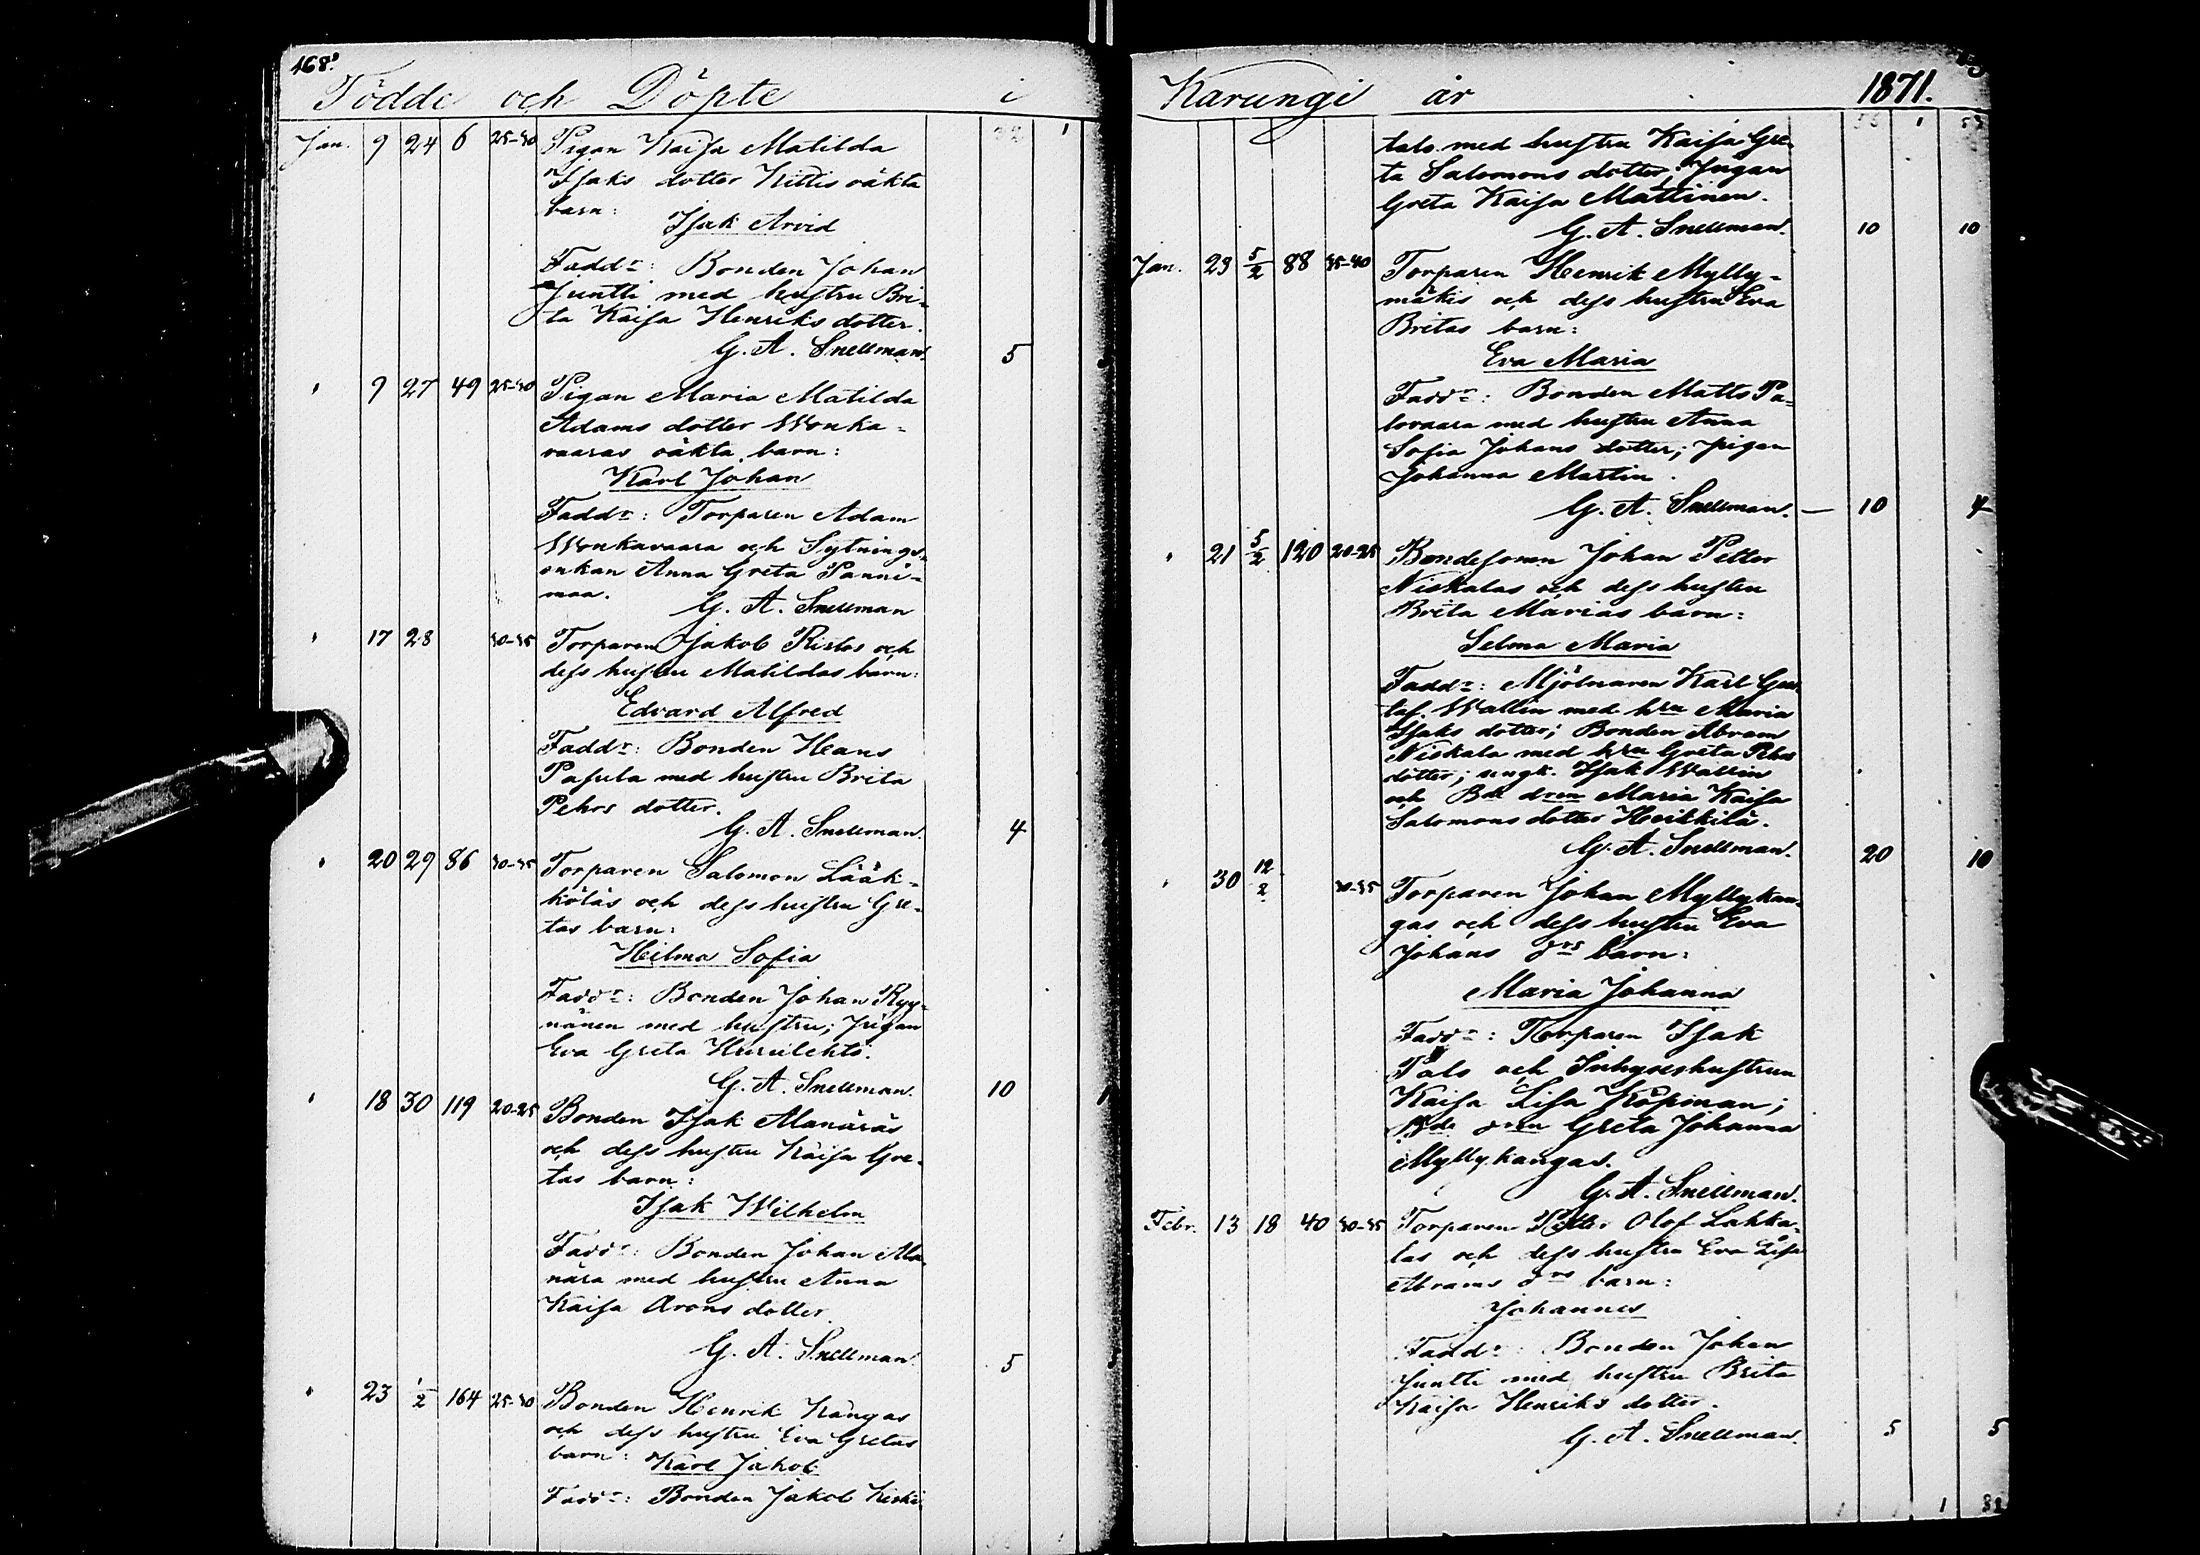 168.
Födde och Döpte i
Jan. 9 24 6 25-30 Pigan Kaisa Matilda
Isaks dotter Kittis oäkta
barn:
Isak Arvid
Faddr: Bonden Johan
Juntti med hustru Bri-
ta Kaisa Henriks dotter.
G. A. Snellman. 5
" 9 27 49 25-30 Pigan Maria Matilda
Adams dotter Wonka-
vaaras oäkta barn:
Karl Johan
Faddr: Torparen Adam
Wonkavaara och Sytnings-
enkan Anna Greta Panni-
maa.
G. A. Snellman
" 17 28 30-35 Torparen Jakob Ristos och
dess hustru Matildas barn:
Edvard Alfred
Faddr: Bonden Hans
Pasula med hustru Brita
Pehrs dotter.
G. A. Snellman. 4
" 20 29 86 30-35 Torparen Salomon Lääk-
köläs och dess hustru Gre-
tas barn:
Hilma Sofia
Faddr: Bonden Johan Ryy-
nänen med hustru; pigan
Eva Greta
G. A. Snellman. 10
" 18 30 119 20-25 Bonden Isak Alanäräs
och dess hustru Kaisa Gre-
tas barn:
Isak Wilhelm
Faddr: Bonden Johan Ala-
nära med hustru Anna
Kaisa Arons dotter.
G. A. Snellman. 5
" 23 1/2 164 25-30 Bonden Henrik Kangas
och dess hustru Eva Gretas
barn: Karl Jakob
Faddr: Bonden Jakob Keski-
Karungi år 1871.
talo med hustru Kaisa Gre-
ta Salomons dotter; Pigan
Greta Kaisa Mattinen.
G. A. Snellman. 10 10
Jan. 29 5/2 88 35-40 Torparen Henrik Mylly-
mäkis och dess hustru Eva
Britas barn:
Eva Maria
Faddr: Bonden Matts Pa-
lovaara med hustru Anna
Sofia Johans dotter; pigan
Johanna Martin.
G. A. Snellman. — 10 4
" 21 5/2 120 20-25 Bondesonen Johan Petter
Niskalas och dess hustru
Brita Marias barn:
Selma Maria
Faddr: Mjölnaren Karl Gus-
taf Wallin med hru Maria
Isaks dotter; Bonden Abram
Niskala med hru Greta Pehrs
dotter; ungk. Isak Wallin
och Bde dren Maria Kaisa
Salomons dotter Heikkilä.
G. A. Snellman. 20 10
" 30 12/2 30-35 Torparen Johan Myllykan-
gas och dess hustru Eva
Johans drs barn:
Maria Johanna
Faddr: Torparen Isak
Palo och Inhyseshustrun
Kaisa Lisa Köpman;
Bde dren Greta Johanna
Myllykangas.
G. A. Snellman.
Febr. 13 18 40 30-35 Torparen Petter Olof Lakka-
las och dess hustru Eva Lisa
Abrams drs barn:
Johannes
Faddr: Bonden Johan
Juntti med hustru Brita
Kaisa Henriks dotter.
G. A. Snellman. 5 5